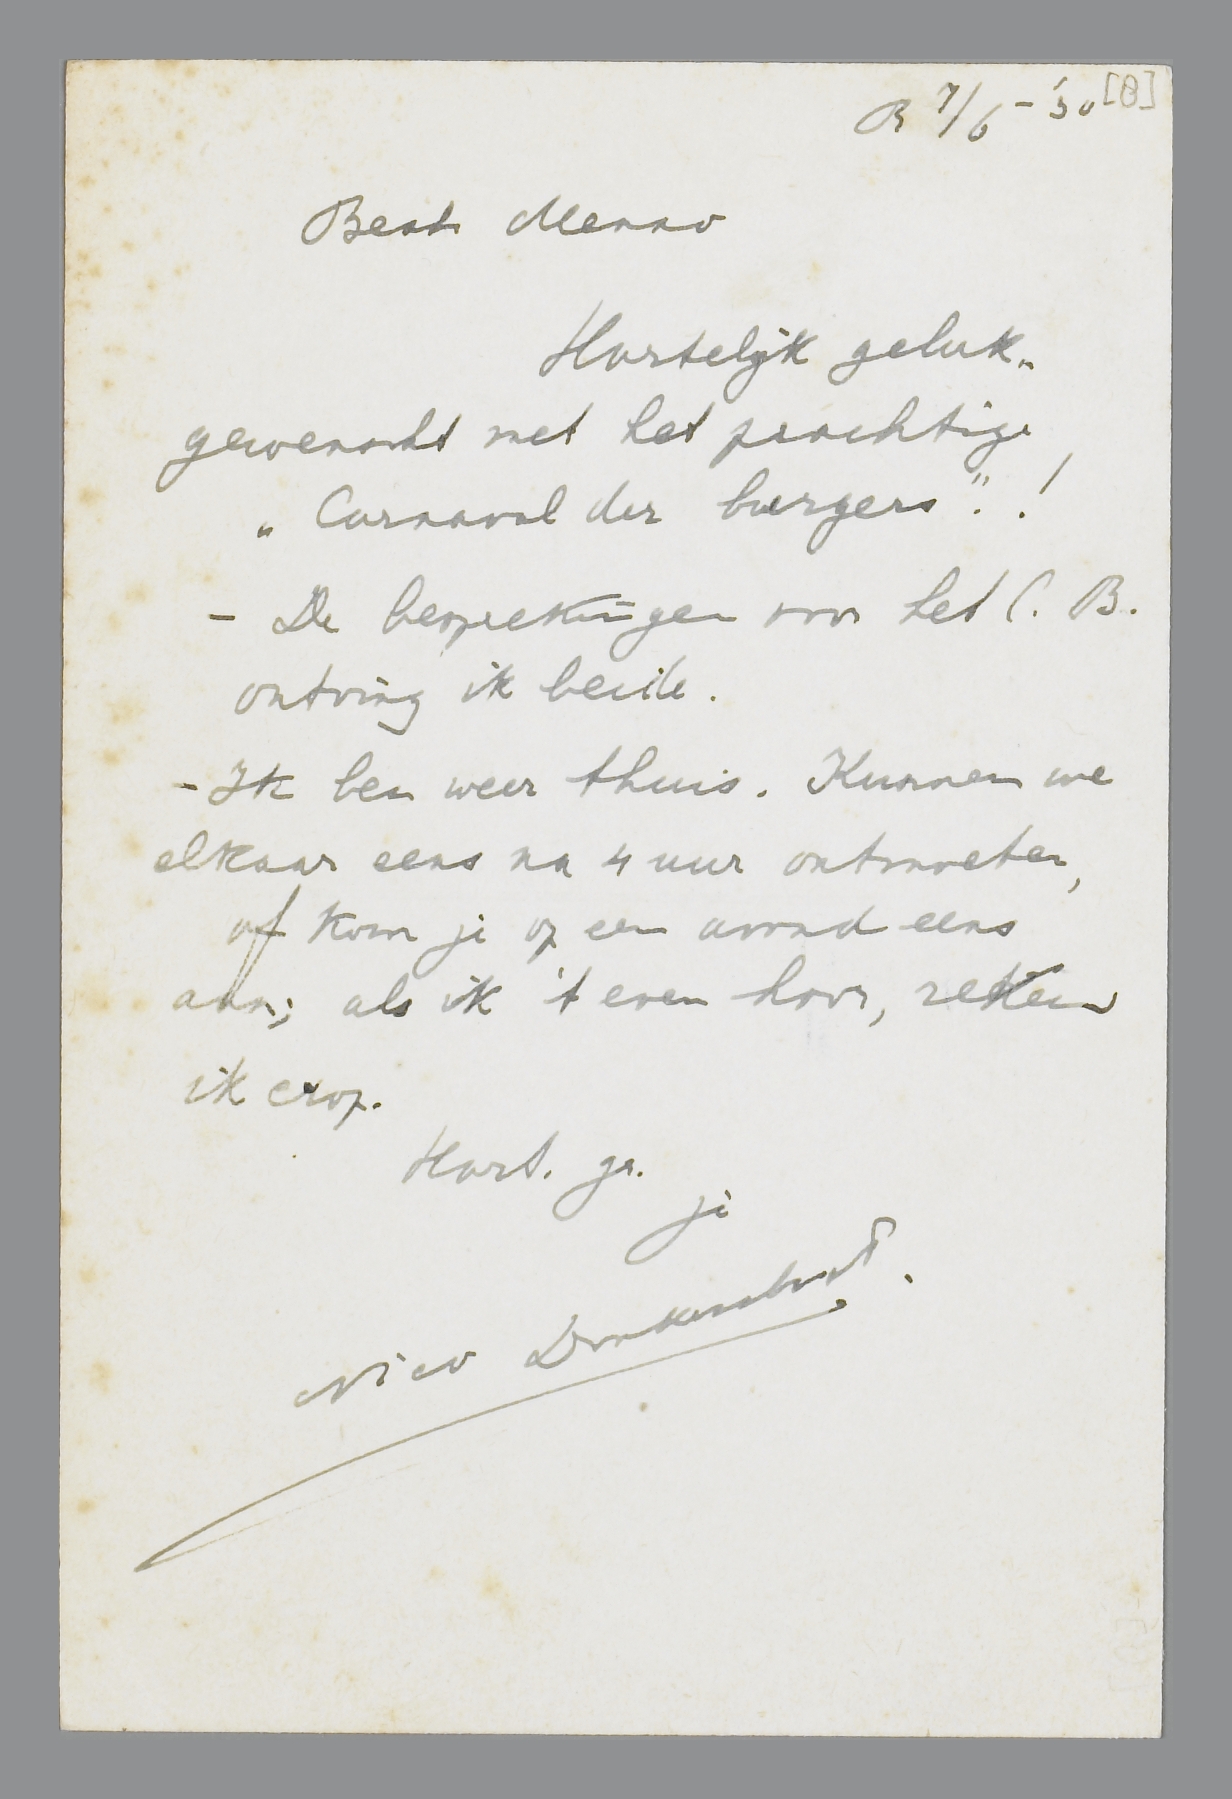 R 7/6 - '30 [8]
Beste Menno
Hartelijk geluk-
gewenscht met het prachtige
„Carnaval der burgers"!
- De besprekingen voor het C. B.
ontving ik beide.
- Ik ben weer thuis. Kunnen we
elkaar eens na 4 uur ontmoeten,
of kom je op een avond eens
aan; als ik 't even hoor, reken
ik erop.
Hart. gr.
je
Nico Donkersloot.